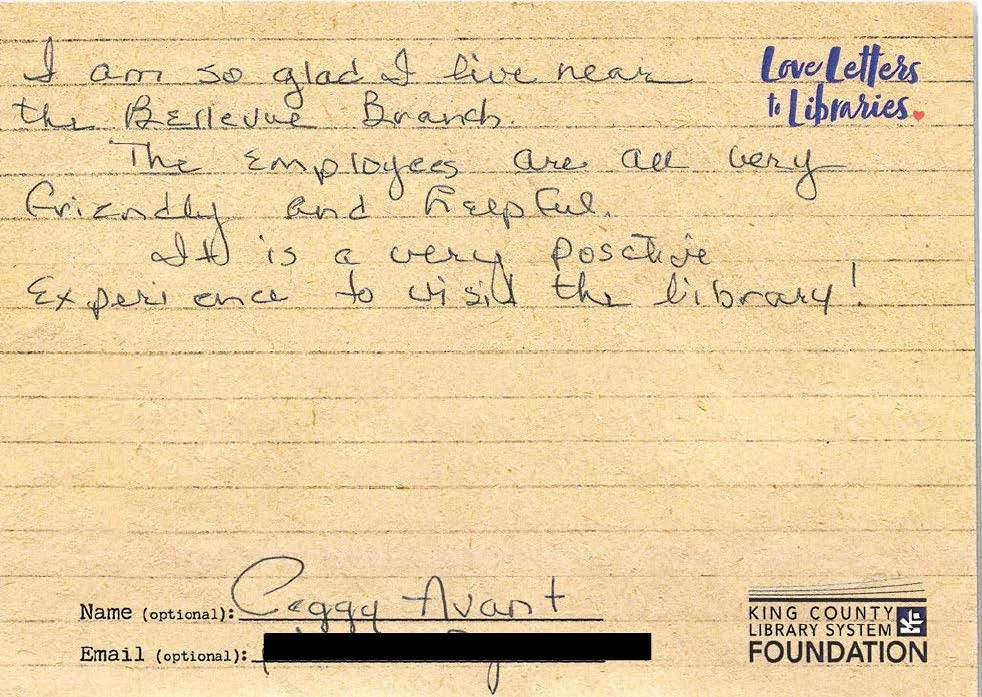 I am so glad I live near
the Bellevue Branch.
The Employees are all very
friendly and helpful.
It is a very posctive
Experience to visit the library!
Love Letters
to Libraries.
Name (optional): Peggy Avant
Email (optional):
KING COUNTY
LIBRARY SYSTEM
FOUNDATION